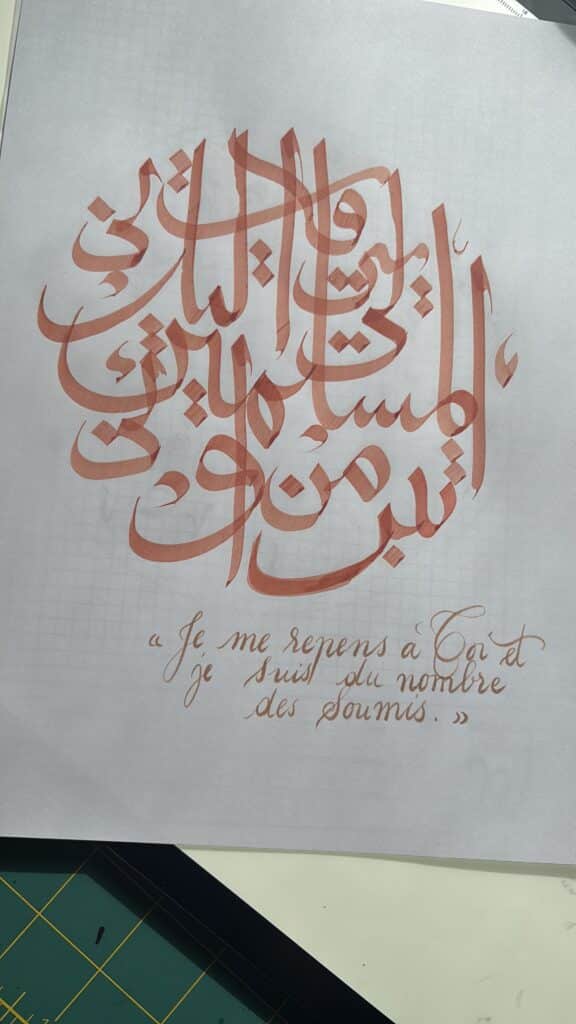 إني تبت إليك وإني من المسلمين
« Je me repens à Toi et
je suis du nombre
des Soumis. »